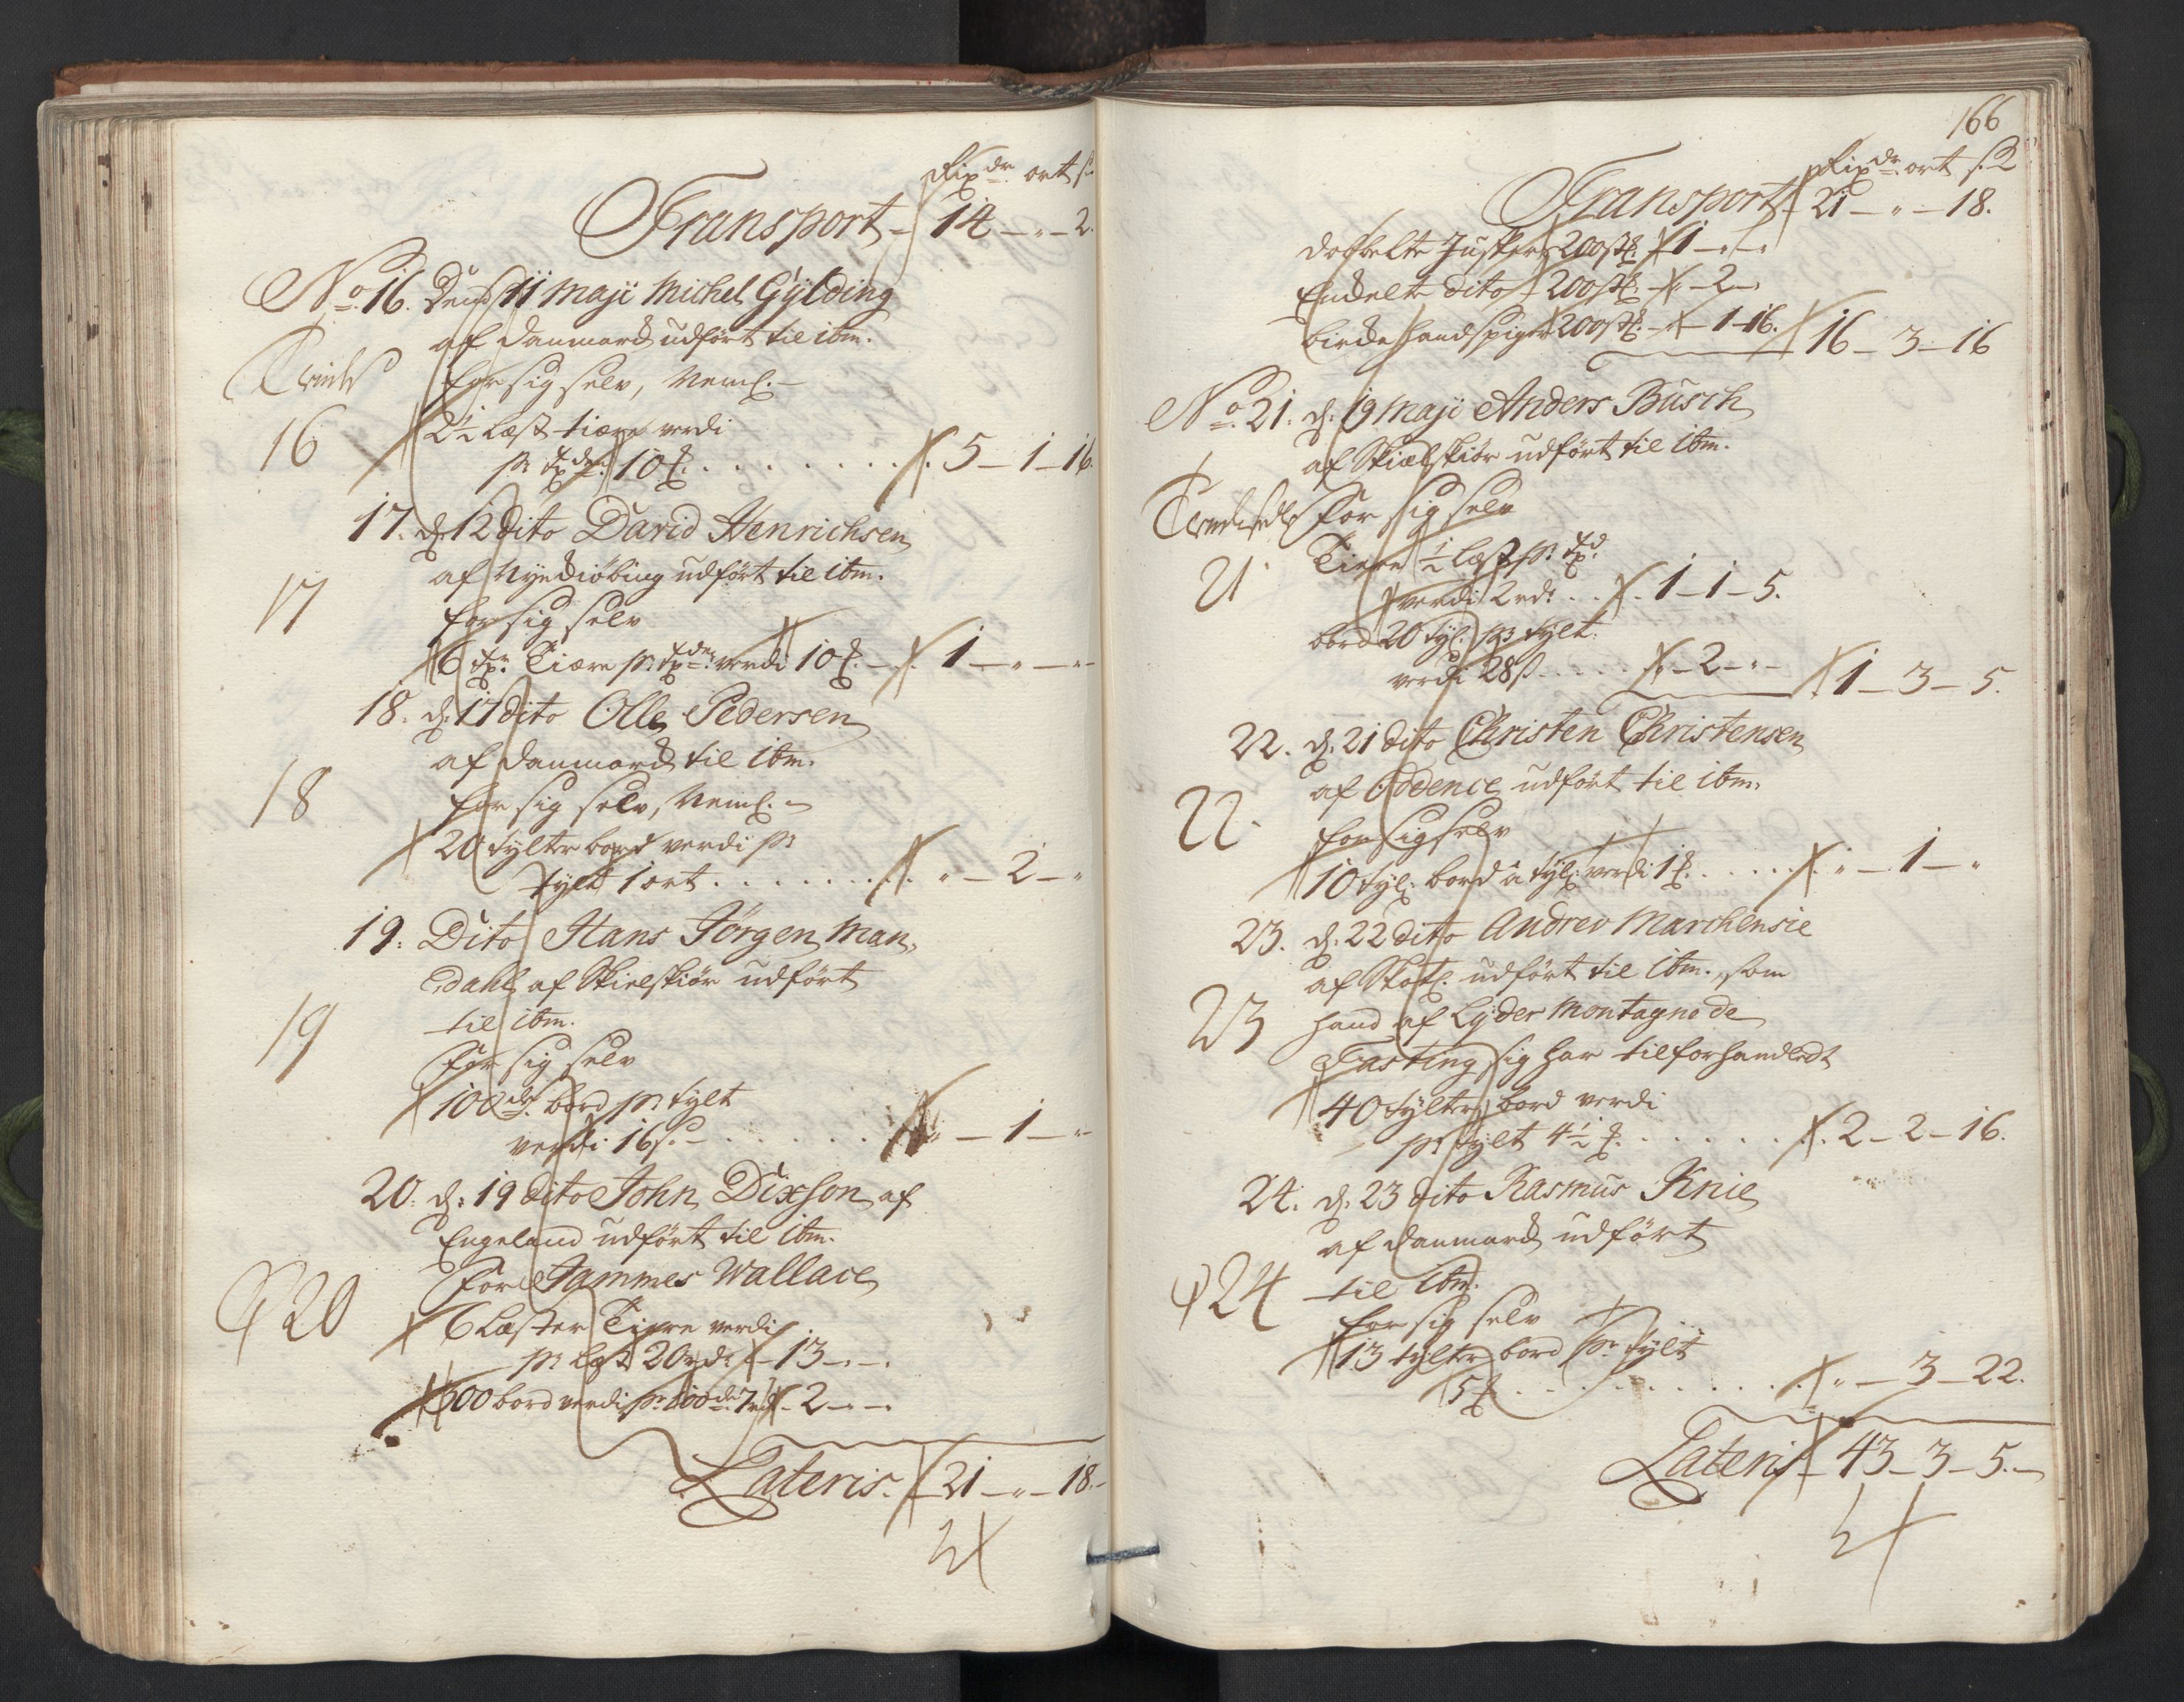 Rixdr. ort s.
Transport - 14 - " - 2.
No. 16. Dend 11 Maji Michel Gylding
af Danmarck udført til ibm.
for sig selv, Neml.
16
2½ Læst tiære verdi
pr. 10
5 - 1 - 16.
17. d: 12 dito David Henrichsen
af Nyekiöbing udført til ibm.
17
for sig selv
6 Tiære pr. verdi 10 - 1 - " - "
18. d: 17 dito Olle Pedersen
af Danmarck til ibm.
18
for sig selv, Neml.
20 tylter bord verdi pr
tylt 1 ort . . . . . . . " - 2 - "
19. Dito Hans Jörgen Man-
dahl af Skielskiör udført
19
til ibm.
for sig selv
100de bord pr tylt
verdi 16 s. - . . . . . " - 1 - "
20. d: 19 dito John Dixson af
Engeland udført til ibm.
20
for Jammes Wallace
6 Læster Tiære verdi
pr Læst 20 rdr - 13 - " - "
600 bord verdi pr 100de 7 rd - 2 - " - "
Lateris. - 21 - " - 18.
166
Rixdr. ort s.
Transport - 21 - " - 18.
dobbelte Juffers 200 st: 1 - " - "
Endelte dito - 200 st: " - 2 - "
birke handspiger 200 st: " - 1 - 16.
16 - 3 - 16
No. 21. d: 19 Maji Anders Busch
af Skielskiör udført til ibm.
for sig selv
21
Tiære ½ Læst pr
verdi 2 rd: . . 1 - 1 - 5.
bord 20 tyl: pr tylt
verdi 28 s . . . . " - 2 - " -
1 - 3 - 5.
22. d: 21 dito Christen Christensen
af Oddence udført til ibm.
22.
for sig selv
10 tyl: bord a tyl: verdi 1 . . . . " - 1 - "
23. d: 22 dito Andrev Marchensie
af Skotl: udført til ibm., som
23
hand af Lyder Montagne de
Fasting sig har tilforhandledt
40 tylter bord verdi
pr tylt 4½ . . . . . . 2 - 2 - 16.
24. d: 23 dito Rasmus Knie
af Danmarck udført
24
til ibm.
for sig selv
13 tylter bord pr tylt
5 . . . . . . . . " - 3 - 22.
Lateris - 43 - 3 - 5. -